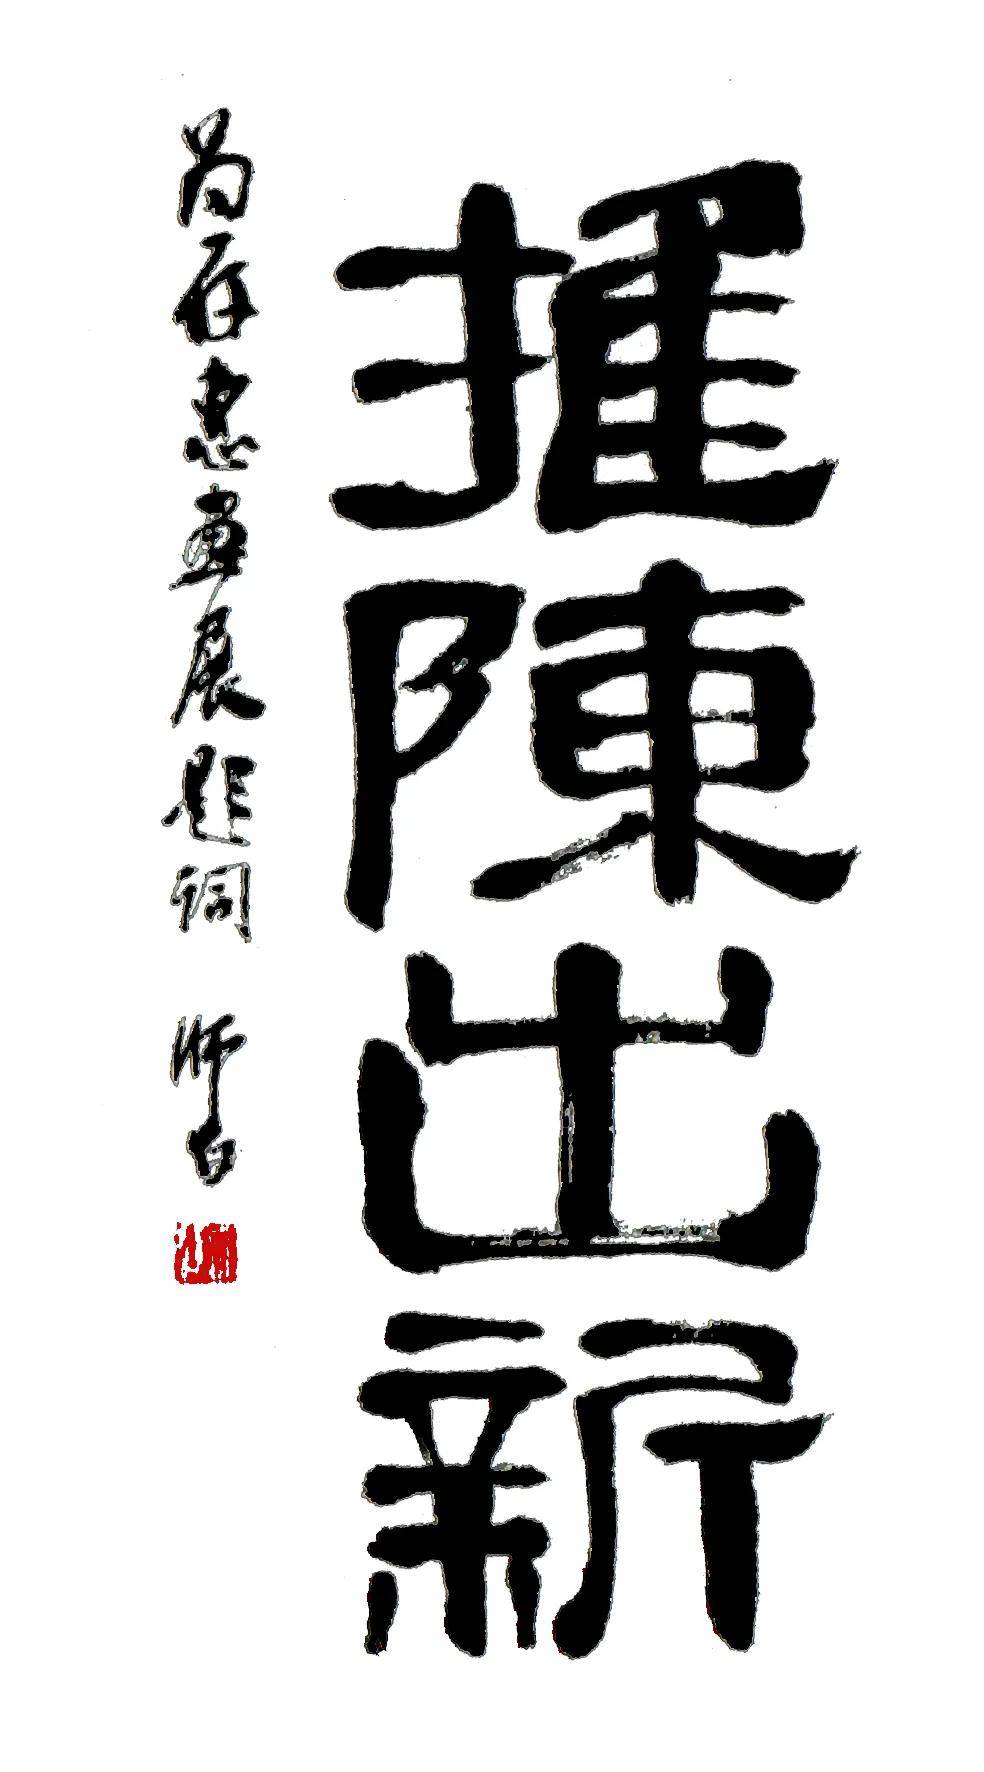 推陳出新
为存惠画展题词 师白